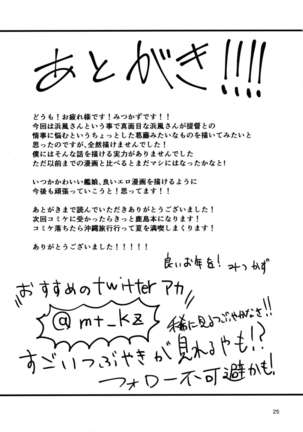 あとがき!!!!
どうも！お疲れ様です！みつかずです！！
今回は浜風さんという事で真面目な浜風さんが提督との
情事に悩むというちょっとした葛藤みたいなものを描いてみたいと
思ったのですが、全然描けませんでした！
僕にはそんな話を描ける実力がありませんでした
ただ以前までの漫画と比べるとまだマシにはなったかなと！
いつかかわいい艦娘、良いエロ漫画を描けるように
今後も頑張っていこうと！思ってます！！
あとがきまで読んでいただきありがとうございました！
次回コミケに受かったらきっと鹿島本になります！
コミケ落ちたら沖縄旅行行って夏を満喫しまくります！
ありがとうございました！！！！！
良いお年を! みつかず
おすすめのtwitterアカ
@mt_kz
稀に見るつぶやきなき!!
すごいつぶやきが見れるやも!?
フォロー不可避かも!
25